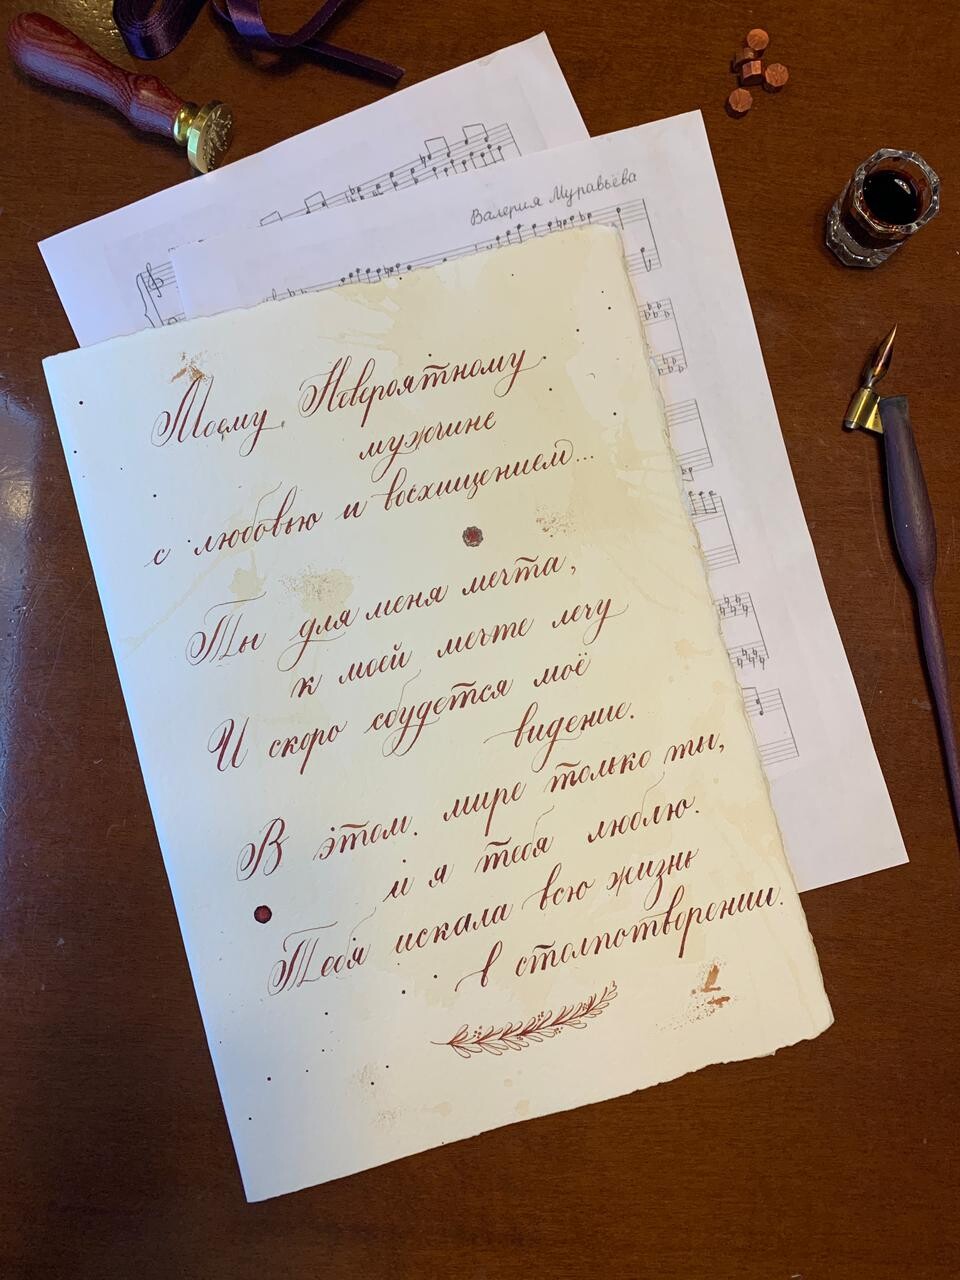 Валерия Муравьёва
Моему Невероятному
мужчине
с любовью и восхищением...
Ты для меня мечта,
к моей мечте лечу
И скоро сбудется моё
видение.
В этом мире только ты,
и я тебя люблю.
Тебя искала всю жизнь
в столпотворении.